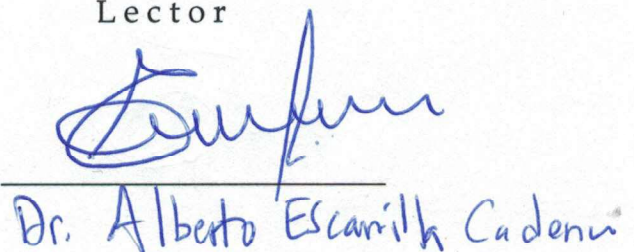 Lector
Dr. Alberto Escamilla Cadena